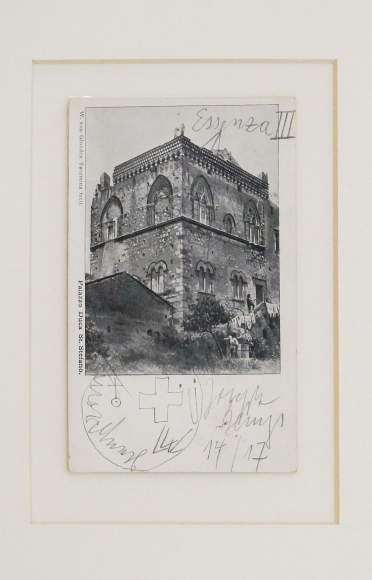 Essenza III
W. von Gloeden, Taormina
Palazzo Duca St. Stefano.
Joseph
Beuys
14/17